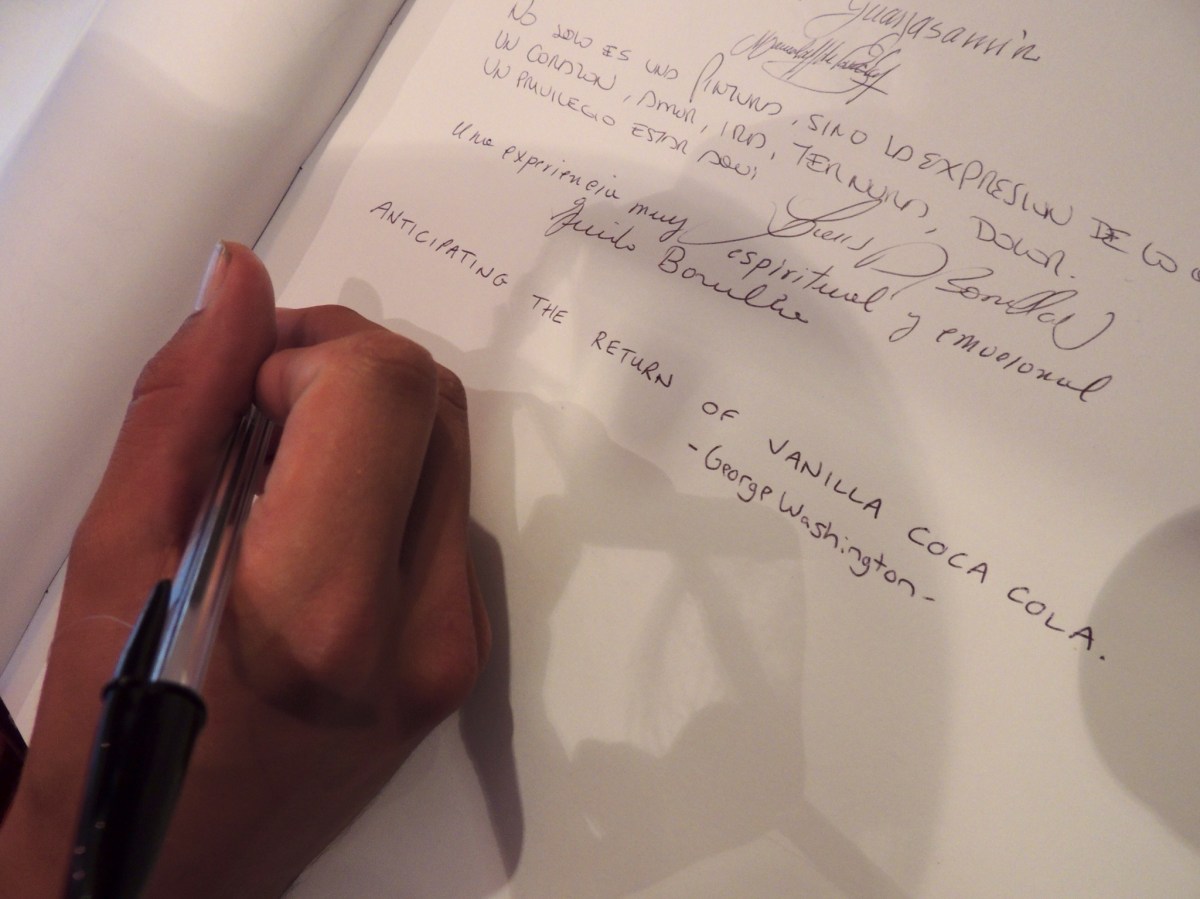 Guayasamin
NO SOLO ES UNA PINTURA, SINO LA EXPRESION DE LO
UN CORAZON, AMOR, IRA, TERNURA, DOLOR.
UN PRIVILEGIO ESTAR AQUI
Una experiencia muy espiritual y emocional
ANTICIPATING THE RETURN OF VANILLA COCA COLA.
-George Washington-